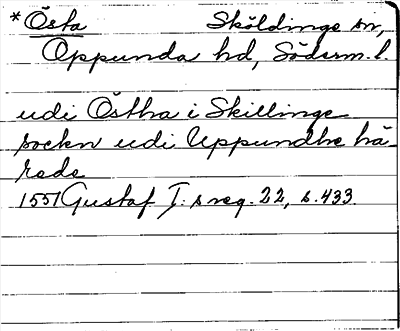 *Östa Sköldinge sn,
Oppunda hd, Söderm. l.
udi Östha i Skillinge
sockn udi Uppundhe hä-
rede
1551 Gustaf I:s reg. 22, s. 433.